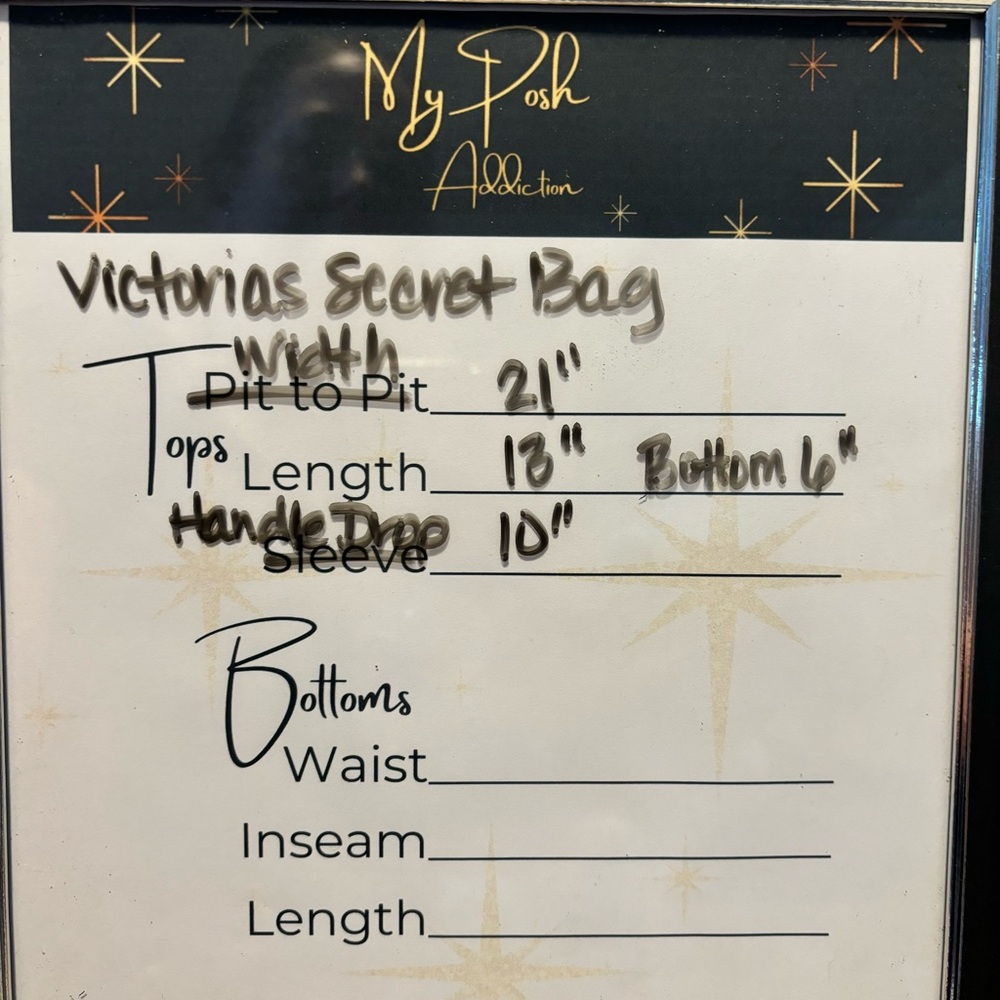 My Posh
Addiction
Victorias Secret Bag
Width
Tops
Pit to Pit 21"
Length 13" Bottom 6"
Handle Drop 10"
Sleeve
Bottoms
Waist
Inseam
Length